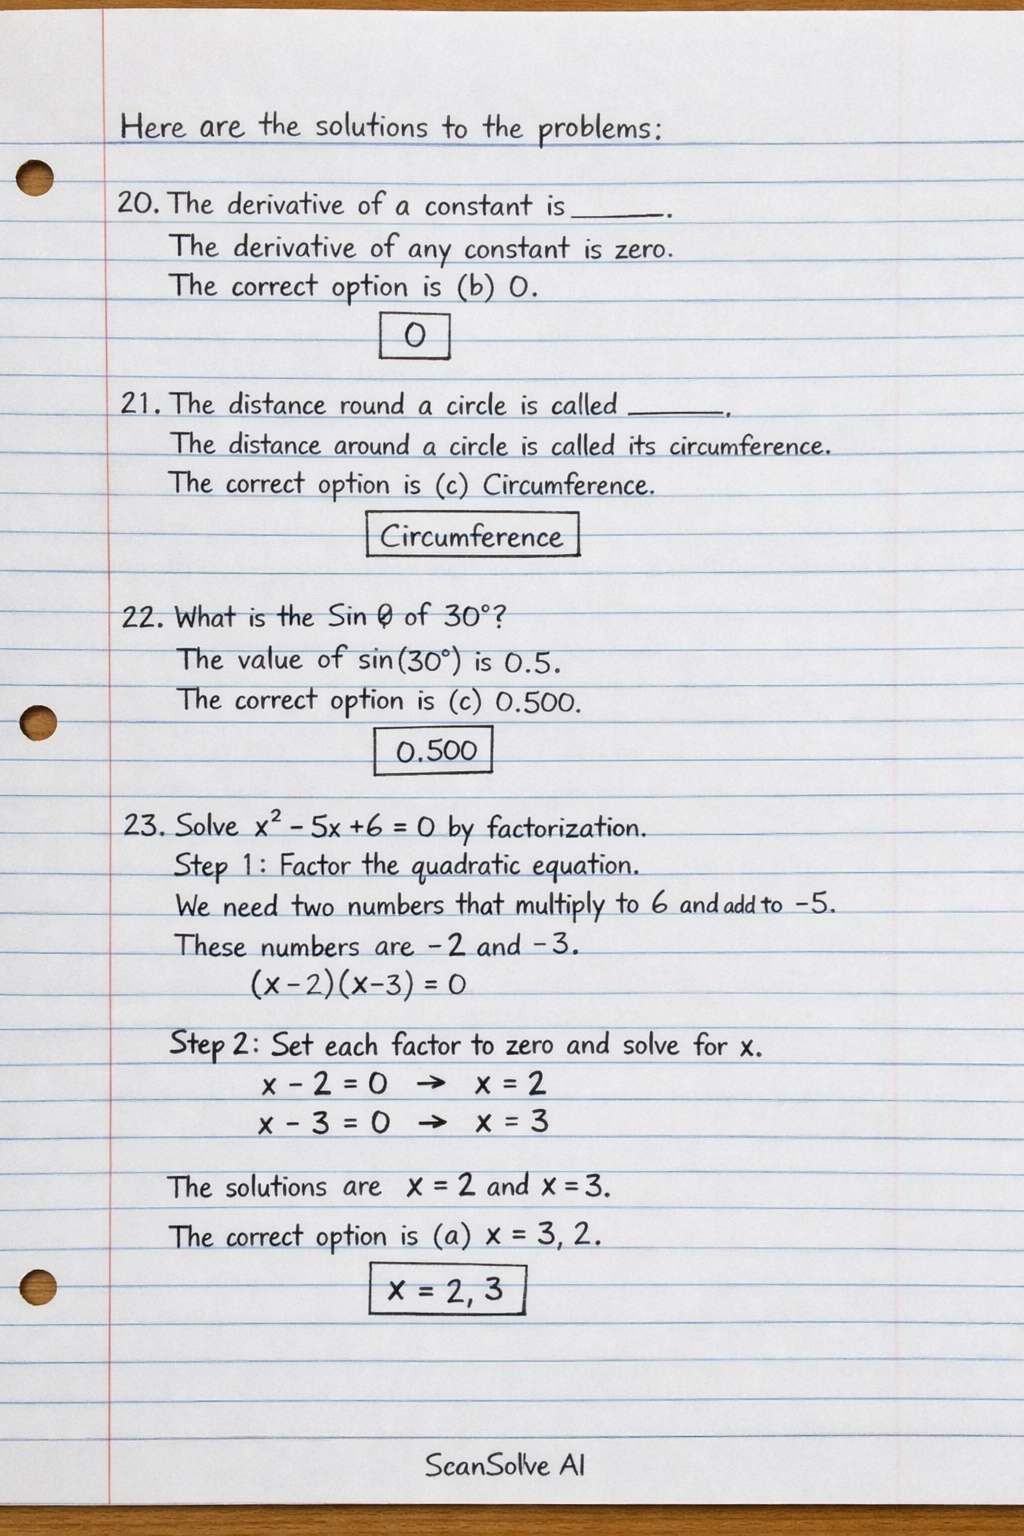 Here are the solutions to the problems:
20. The derivative of a constant is ______.
The derivative of any constant is zero.
The correct option is (b) 0.
0
21. The distance round a circle is called ______.
The distance around a circle is called its circumference.
The correct option is (c) Circumference.
Circumference
22. What is the Sin θ of 30°?
The value of sin(30°) is 0.5.
The correct option is (c) 0.500.
0.500
23. Solve x² - 5x + 6 = 0 by factorization.
Step 1: Factor the quadratic equation.
We need two numbers that multiply to 6 and add to -5.
These numbers are -2 and -3.
(x-2)(x-3) = 0
Step 2: Set each factor to zero and solve for x.
x - 2 = 0 → x = 2
x - 3 = 0 → x = 3
The solutions are x = 2 and x = 3.
The correct option is (a) x = 3, 2.
x = 2, 3
ScanSolve AI